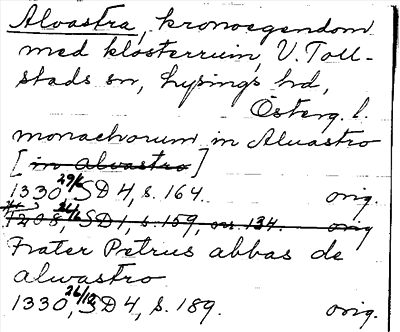 Alvastra, kronoegendom
med klosterruin, V. Toll-
stads sn, Lysings hd,
Österg. l.
monachorum in Aluastro
[in alvastro]
1330 29/6, SD 4, s. 164. orig.
1208, SD 1, s. 159, nr. 134. orig
Frater Petrus abbas de
alwastro
1330, 26/12 SD 4, s. 189. orig.